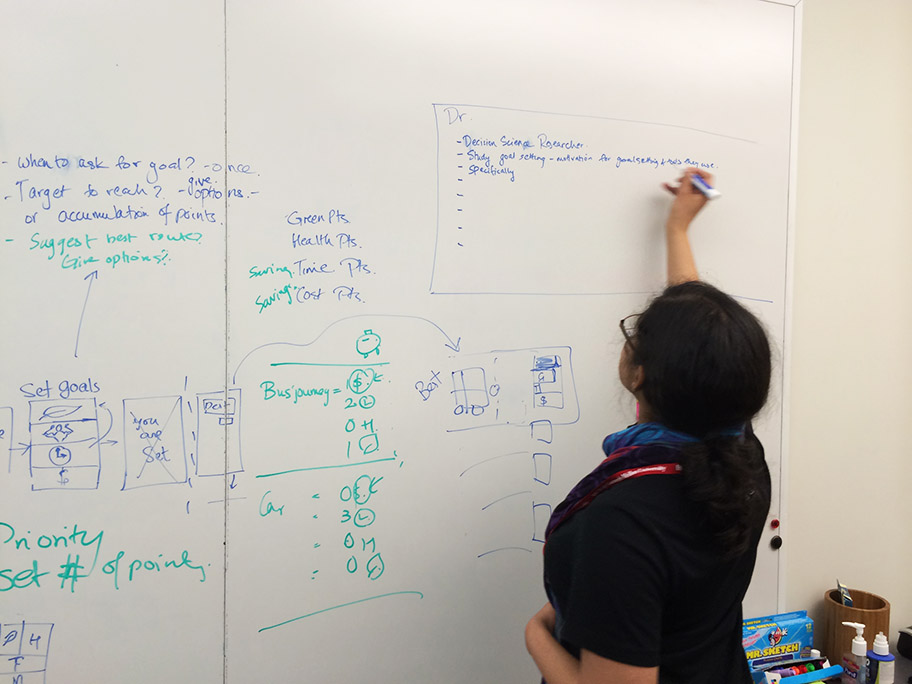 - When to ask for goal? - once.
give
- Target to reach? - options. -
or accumulation of points.
- Suggest best route?
Give options?
Green Pts
Health Pts.
Saving. Time Pts.
Saving. Cost Pts.
Dr.
- Decision Science Researcher.
- Study goal setting - motivation for goal setting & tools they use.
- Specifically
Set goals
$
you
are
Set
Bus journey = 1 $
2
0 H
1
Car = 0 $
= 3
= 0 H
= 0
Best
G
$
Priority
set # of points.
P H
T
MR. SKETCH